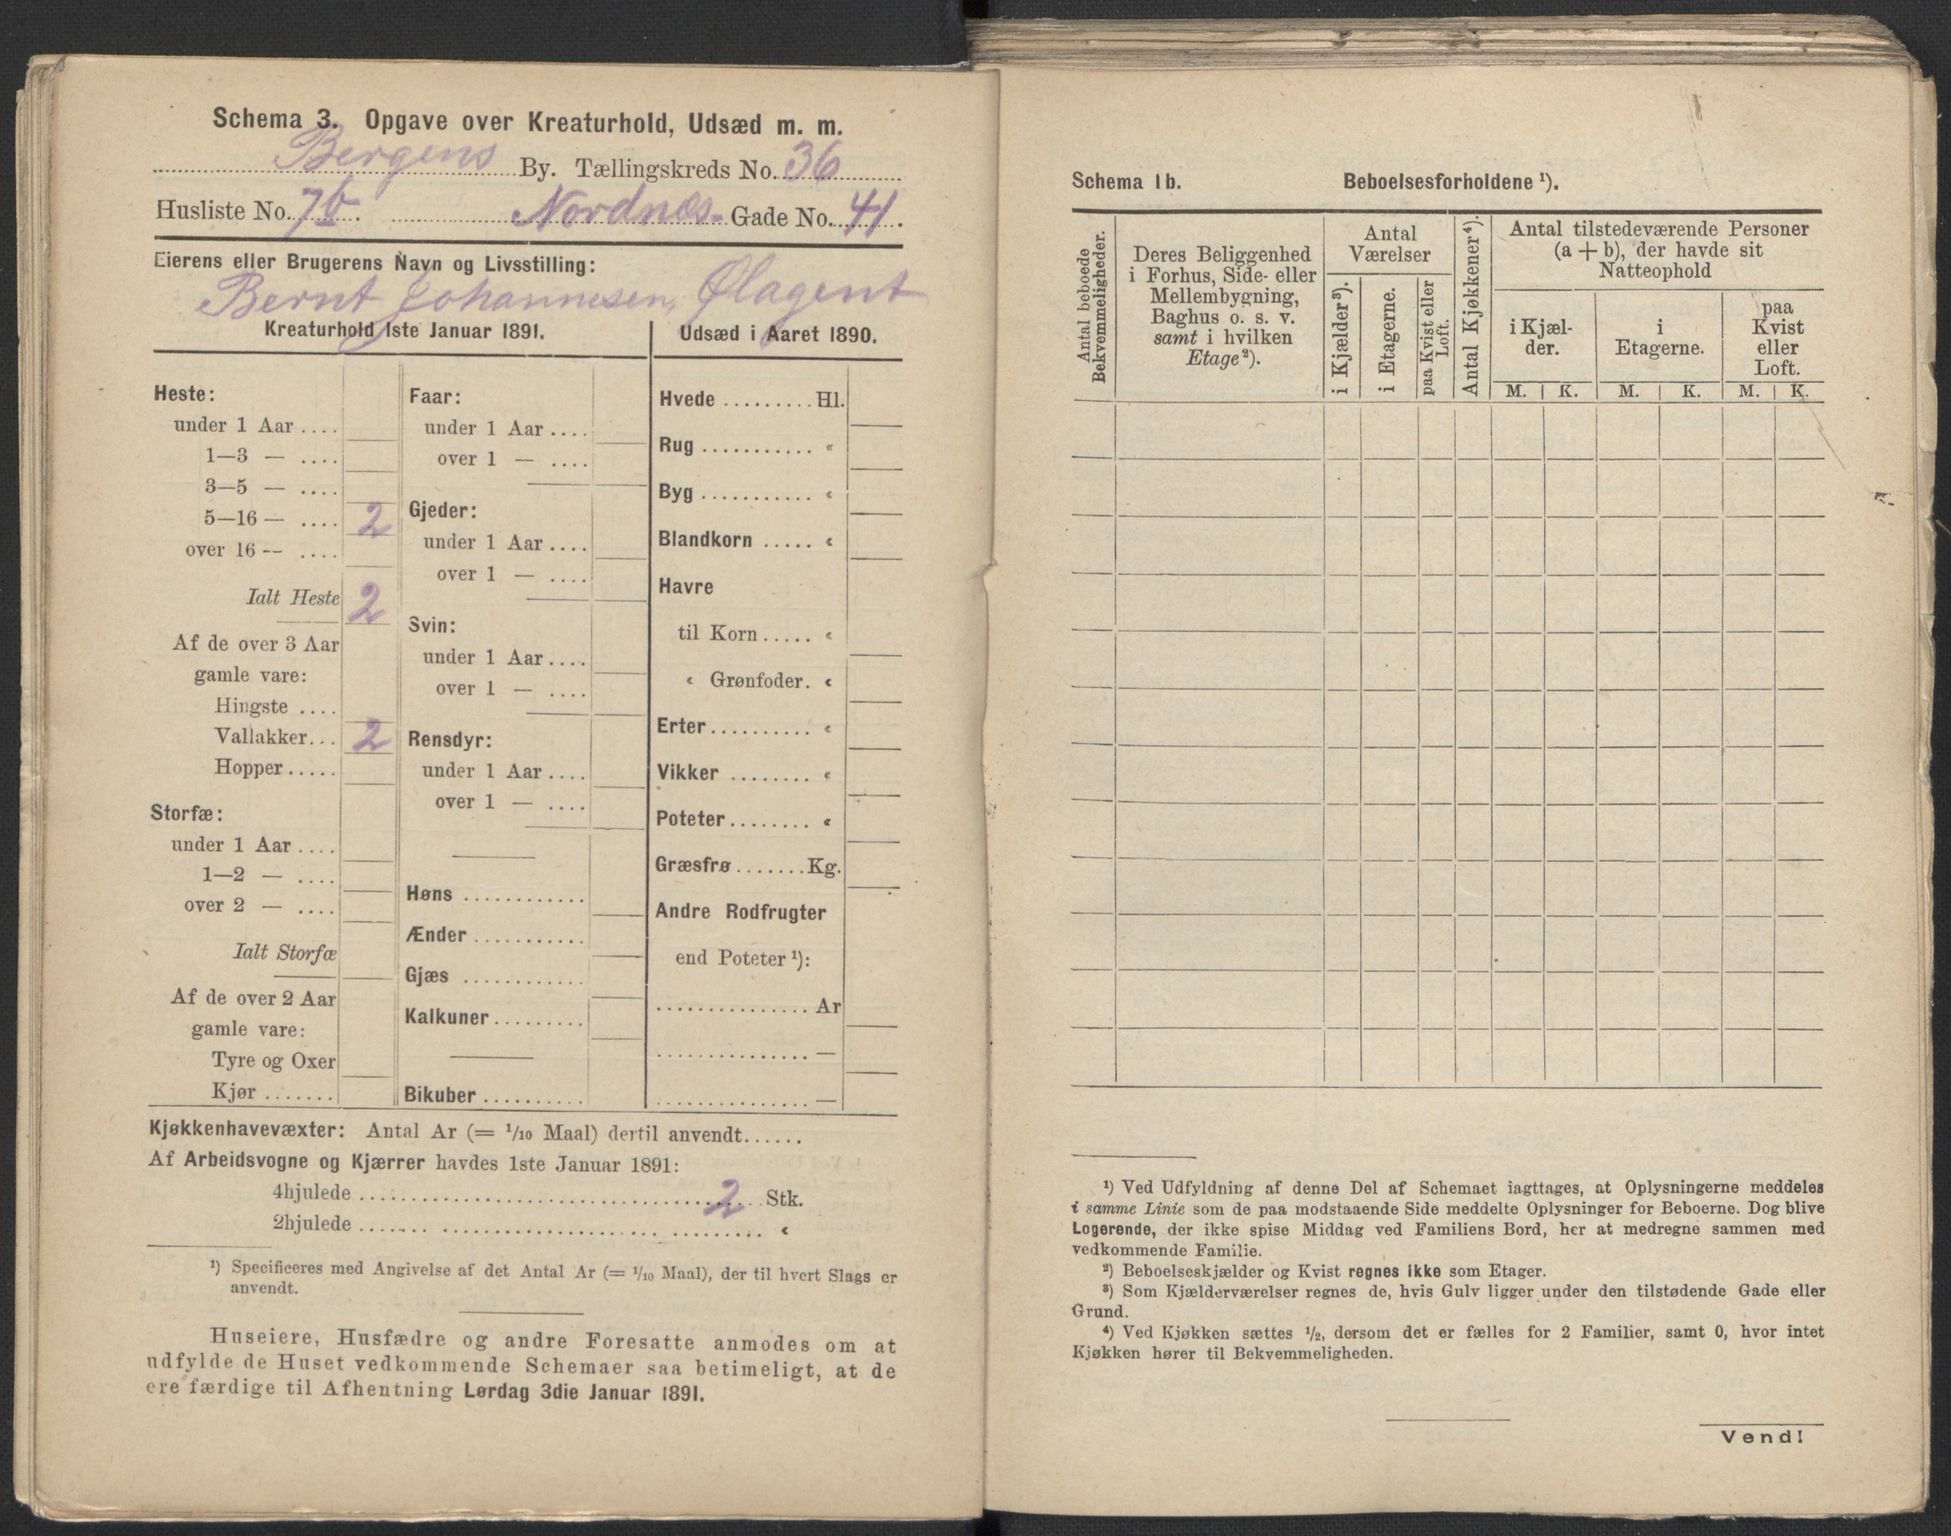 Schema 3. Opgave over Kreaturhold, Udsæd m. m.
Bergens By. Tællingskreds No. 36
Husliste No. 7b. Nordnæs- Gade No. 41.
Eierens eller Brugerens Navn og Livsstilling:
Bernt Johannesen, Ølagent
Kreaturhold 1ste Januar 1891.
Heste:
under 1 Aar ....
1—3 — ....
3—5 — ....
5—16 — .... 2
over 16 — ....
Ialt Heste 2
Af de over 3 Aar
gamle vare:
Hingste ....
Vallakker... 2
Hopper.....
Storfæ:
under 1 Aar ....
1—2 — ....
over 2 — ....
Ialt Storfæ
Af de over 2 Aar
gamle vare:
Tyre og Oxer
Kjør .......
Faar:
under 1 Aar ....
over 1 — ....
Gjeder:
under 1 Aar ....
over 1 — ....
Svin:
under 1 Aar ....
over 1 — ....
Rensdyr:
under 1 Aar ....
over 1 — ....
Høns ............
Ænder ...........
Gjæs ............
Kalkuner.........
Bikuber ..........
Udsæd i Aaret 1890.
Hvede ......... Hl.
Rug ........... «
Byg ........... «
Blandkorn ..... «
Havre
til Korn ..... «
« Grønfoder. «
Erter.......... «
Vikker ........ «
Poteter........ «
Græsfrø ....... Kg.
Andre Rodfrugter
end Poteter ¹):
............... Ar
............... —
............... —
Kjøkkenhavevæxter: Antal Ar (= 1/10 Maal) dertil anvendt......
Af Arbeidsvogne og Kjærrer havdes 1ste Januar 1891:
4hjulede .................................. 2 Stk.
2hjulede .................................. «
¹) Specificeres med Angivelse af det Antal Ar (= 1/10 Maal), der til hvert Slags er
anvendt.
Huseiere, Husfædre og andre Foresatte anmodes om at
udfylde de Huset vedkommende Schemaer saa betimeligt, at de
ere færdige til Afhentning Lørdag 3die Januar 1891.
Schema 1b. Beboelsesforholdene ¹).
Antal beboede
Bekvemmeligheder.
Deres Beliggenhed
i Forhus, Side- eller
Mellembygning,
Baghus o. s. v.
samt i hvilken
Etage ²).
Antal
Værelser
i Kjælder ³).
i Etagerne.
paa Kvist eller
Loft.
Antal Kjøkkener ⁴).
Antal tilstedeværende Personer
(a + b), der havde sit
Natteophold
i Kjæl-
der.
i
Etagerne.
paa
Kvist
eller
Loft.
M. K. M. K. M. K.
¹) Ved Udfyldning af denne Del af Schemaet iagttages, at Oplysningerne meddeles
i samme Linie som de paa modstaaende Side meddelte Oplysninger for Beboerne. Dog blive
Logerende, der ikke spise Middag ved Familiens Bord, her at medregne sammen med
vedkommende Familie.
²) Beboelseskjælder og Kvist regnes ikke som Etager.
³) Som Kjælderværelser regnes de, hvis Gulv ligger under den tilstødende Gade eller
Grund.
⁴) Ved Kjøkken sættes 1/2, dersom det er fælles for 2 Familier, samt 0, hvor intet
Kjøkken hører til Bekvemmeligheden.
Vend!